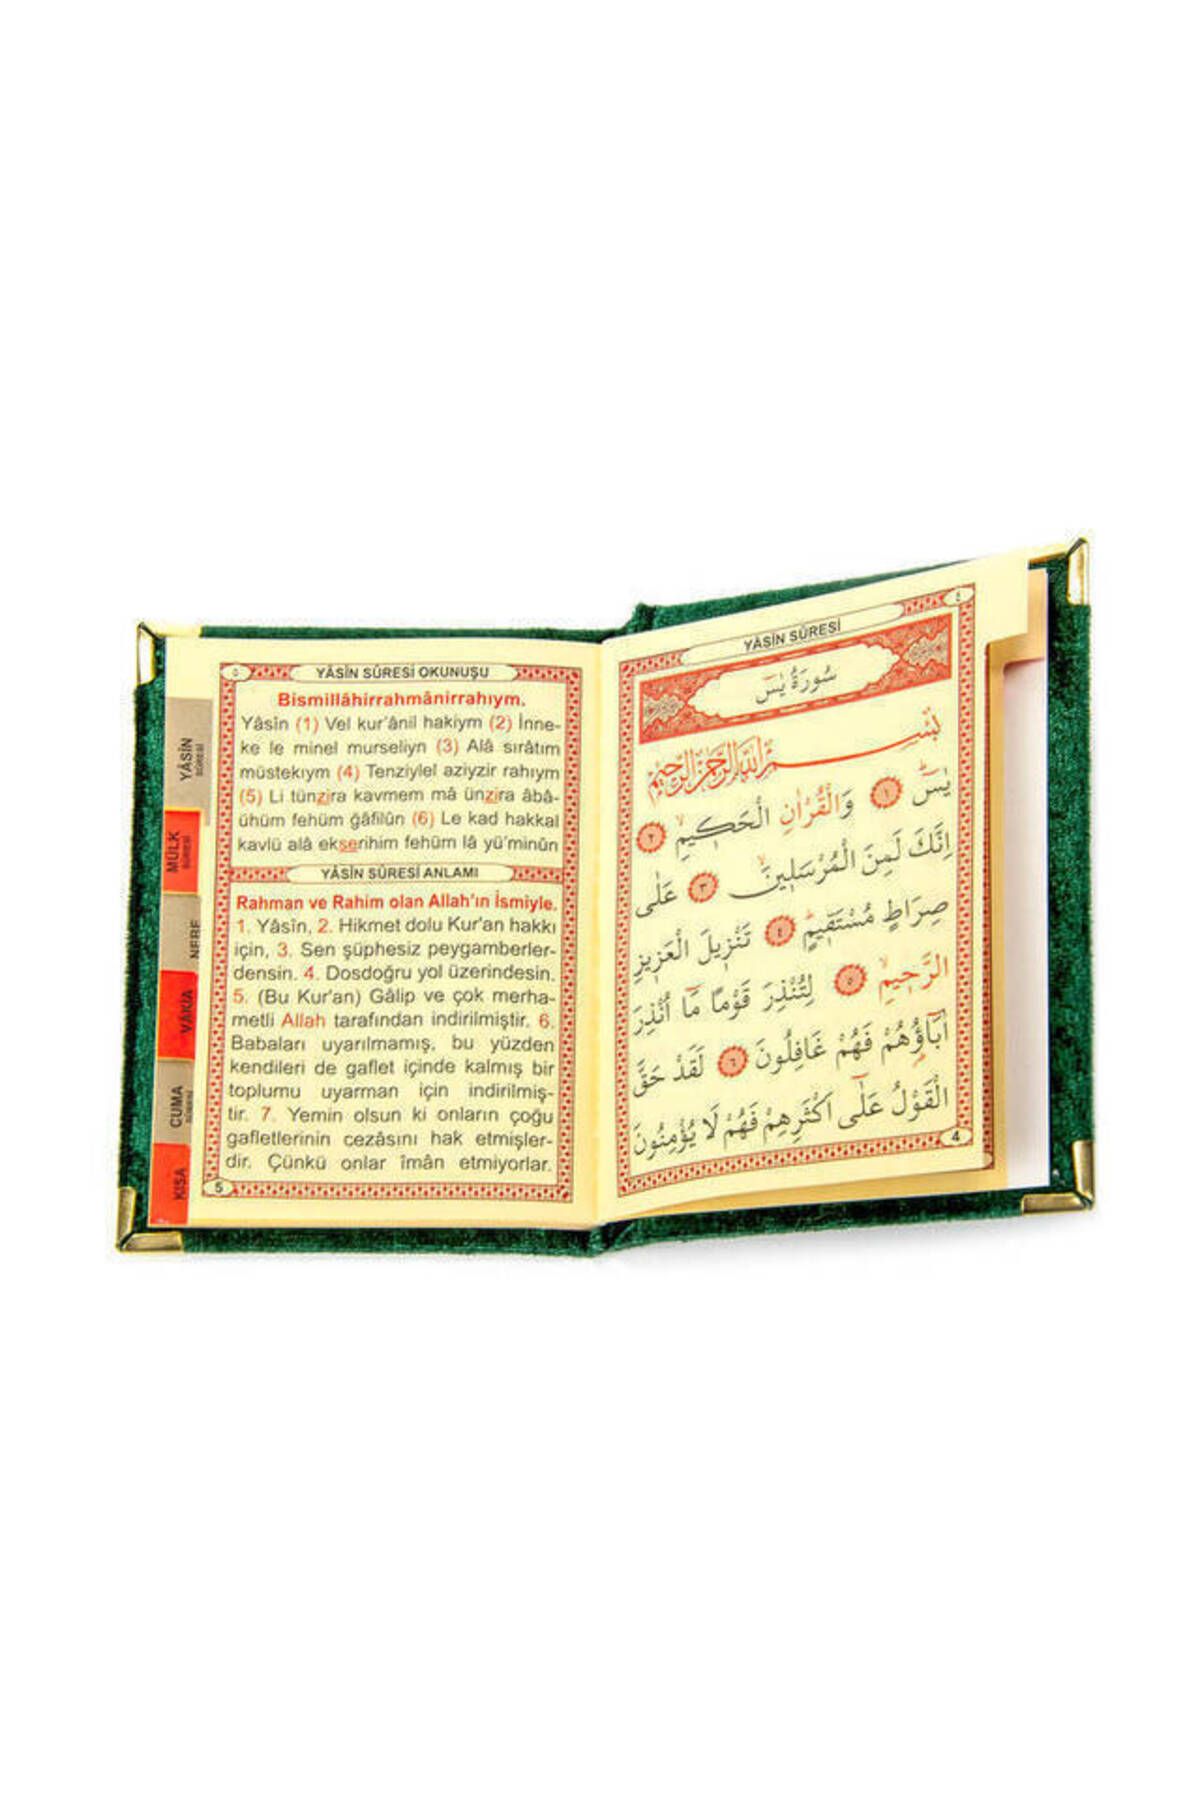 ٥
YÂSİN SÛRESİ OKUNUŞU
Bismillâhirrahmânirrahıym.
Yâsîn (1) Vel kur'ânil hakiym (2) İnne-
ke le minel murseliyn (3) Alâ sırâtım
müstekıym (4) Tenziylel aziyzir rahıym
(5) Li tünzira kavmem mâ ünzira âbâ-
ühüm fehüm ğâfilûn (6) Le kad hakkal
kavlü alâ ekserihim fehüm lâ yü'minûn
YÂSİN SÛRESİ ANLAMI
Rahman ve Rahim olan Allah'ın İsmiyle.
1. Yâsîn, 2. Hikmet dolu Kur'an hakkı
için, 3. Sen şüphesiz peygamberler-
densin. 4. Dosdoğru yol üzerindesin.
5. (Bu Kur'an) Gâlip ve çok merha-
metli Allah tarafından indirilmiştir. 6.
Babaları uyarılmamış, bu yüzden
kendileri de gaflet içinde kalmış bir
toplumu uyarman için indirilmiş-
tir. 7. Yemin olsun ki onların çoğu
gafletlerinin cezâsını hak etmişler-
dir. Çünkü onlar îmân etmiyorlar.
5
YÂSİN
SÛRESİ
MÜLK
SÛRESİ
NEBE
VÂKIA
CUMA
SÛRESİ
KISA
٤
YÂSİN SÛRESİ
سُورَةُ يٰسٓ
بِسْمِ اللّٰهِ الرَّحْمٰنِ الرَّحِيمِ
يٰسٓ ۚ ﴿١﴾ وَالْقُرْاٰنِ الْحَكِيمِۙ ﴿٢﴾
اِنَّكَ لَمِنَ الْمُرْسَلِينَۙ ﴿٣﴾ عَلٰى
صِرَاطٍ مُسْتَقِيمٍۜ ﴿٤﴾ تَنْزِيلَ الْعَزِيزِ
الرَّحِيمِۙ ﴿٥﴾ لِتُنْذِرَ قَوْمًا مَٓا اُنْذِرَ
اٰبَٓاؤُهُمْ فَهُمْ غَافِلُونَ ﴿٦﴾ لَقَدْ حَقَّ
الْقَوْلُ عَلٰٓى اَكْثَرِهِمْ فَهُمْ لَا يُؤْمِنُونَ
4